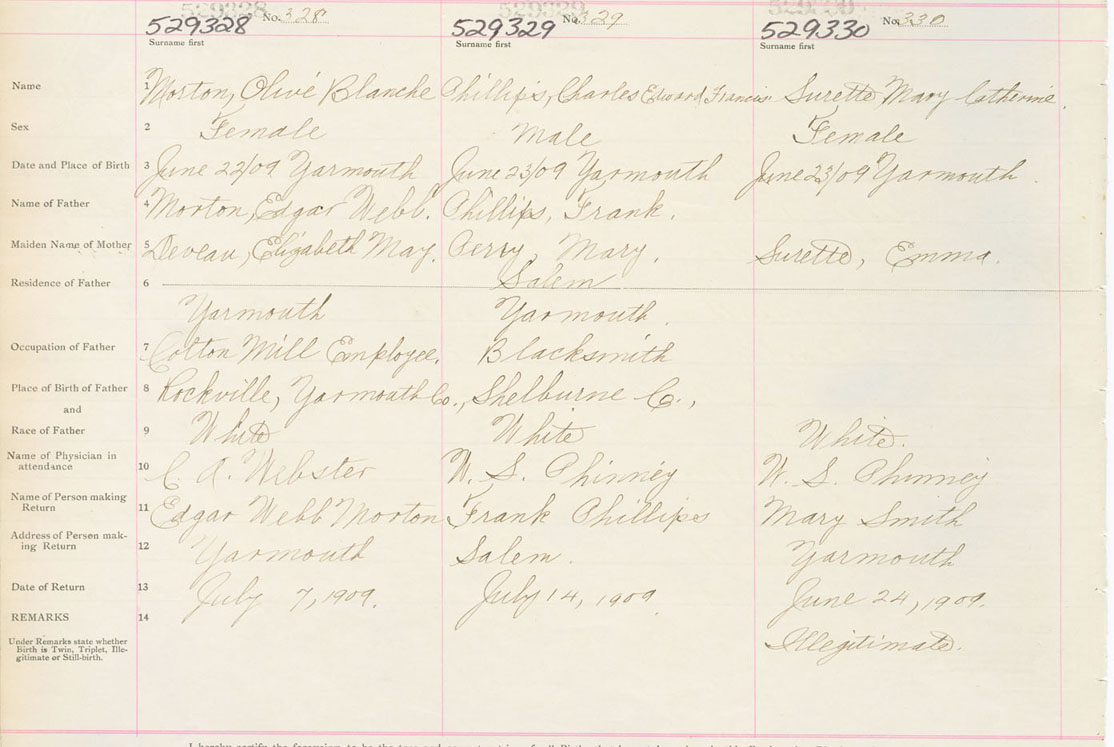 529328 No. 328 529329 No. 329 529330 No. 330
Surname first Surname first Surname first
Name 1 Morton, Olive Blanche Phillips, Charles Edward Francis. Surette Mary Catherine.
Sex 2 Female Male Female
Date and Place of Birth 3 June 22/09 Yarmouth June 23/09 Yarmouth June 23/09 Yarmouth.
Name of Father 4 Morton, Edgar Webb. Phillips, Frank.
Maiden Name of Mother 5 Deveau, Elizabeth May. Perry, Mary. Surette, Emma.
Residence of Father 6 Salem
Yarmouth Yarmouth.
Occupation of Father 7 Cotton Mill Employee. Blacksmith
Place of Birth of Father 8 Rockville, Yarmouth Co., Shelburne C.,
and
Race of Father 9 White White White.
Name of Physician in
attendance 10 C. A. Webster W. S. Phinney W. S. Phinney
Name of Person making
Return 11 Edgar Webb Morton Frank Phillips Mary Smith
Address of Person mak-
ing Return 12 Yarmouth Salem. Yarmouth
Date of Return 13 July 7, 1909. July 14, 1909. June 24, 1909.
REMARKS 14
Under Remarks state whether
Birth is Twin, Triplet, Ille-
gitimate or Still-birth.
Illegitimate.